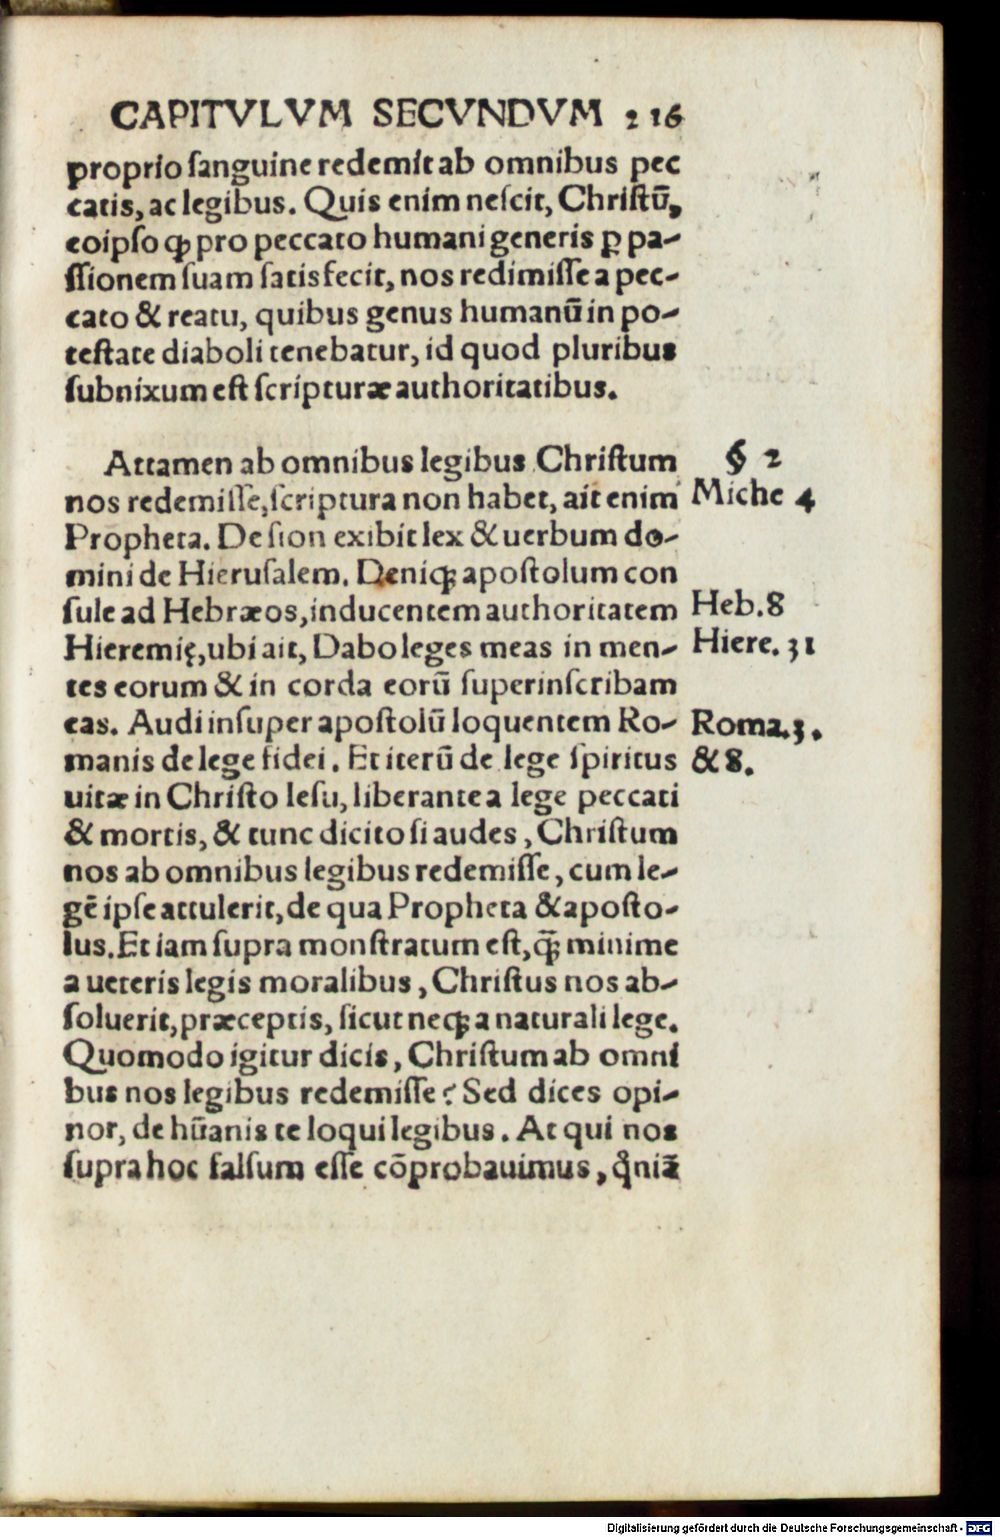 CAPITVLVM SECVNDVM 216
proprio ſanguine redemit ab omnibus pec
catis, ac legibus. Quis enim neſcit, Chriſtū,
eoipſo ꝙ pro peccato humani generis ꝑ pa-
ſſionem ſuam ſatisfecit, nos redimiſſe a pec-
cato & reatu, quibus genus humanū in po-
teſtate diaboli tenebatur, id quod pluribus
ſubnixum eſt ſcripturæ authoritatibus.
Attamen ab omnibus legibus Chriſtum § 2
nos redemiſſe, ſcriptura non habet, ait enim Miche 4
Propheta. De ſion exibit lex & uerbum do-
mini de Hieruſalem. Deniqꝫ apoſtolum con
ſule ad Hebræos, inducentem authoritatem Heb. 8
Hieremię, ubi ait, Dabo leges meas in men- Hiere. 31
tes eorum & in corda eorū ſuperinſcribam
eas. Audi inſuper apoſtolū loquentem Ro- Roma. 3.
manis de lege fidei. Et iterū de lege ſpiritus & 8.
uitæ in Chriſto Ieſu, liberante a lege peccati
& mortis, & tunc dicito ſi audes, Chriſtum
nos ab omnibus legibus redemiſſe, cum le-
gē ipſe attulerit, de qua Propheta & apoſto-
lus. Et iam ſupra monſtratum eſt, qꝫ̄ minime
a ueteris legis moralibus, Chriſtus nos ab-
ſoluerit, præceptis, ſicut neqꝫ a naturali lege.
Quomodo igitur dicis, Chriſtum ab omni
bus nos legibus redemiſſe? Sed dices opi-
nor, de hūanis te loqui legibus. At qui nos
ſupra hoc falſum eſſe cōprobauimus, qͥniā
Digitalisierung gefördert durch die Deutsche Forschungsgemeinschaft - DFG